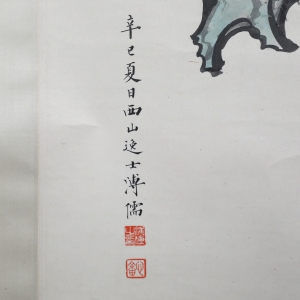 辛巳夏日西山逸士溥儒